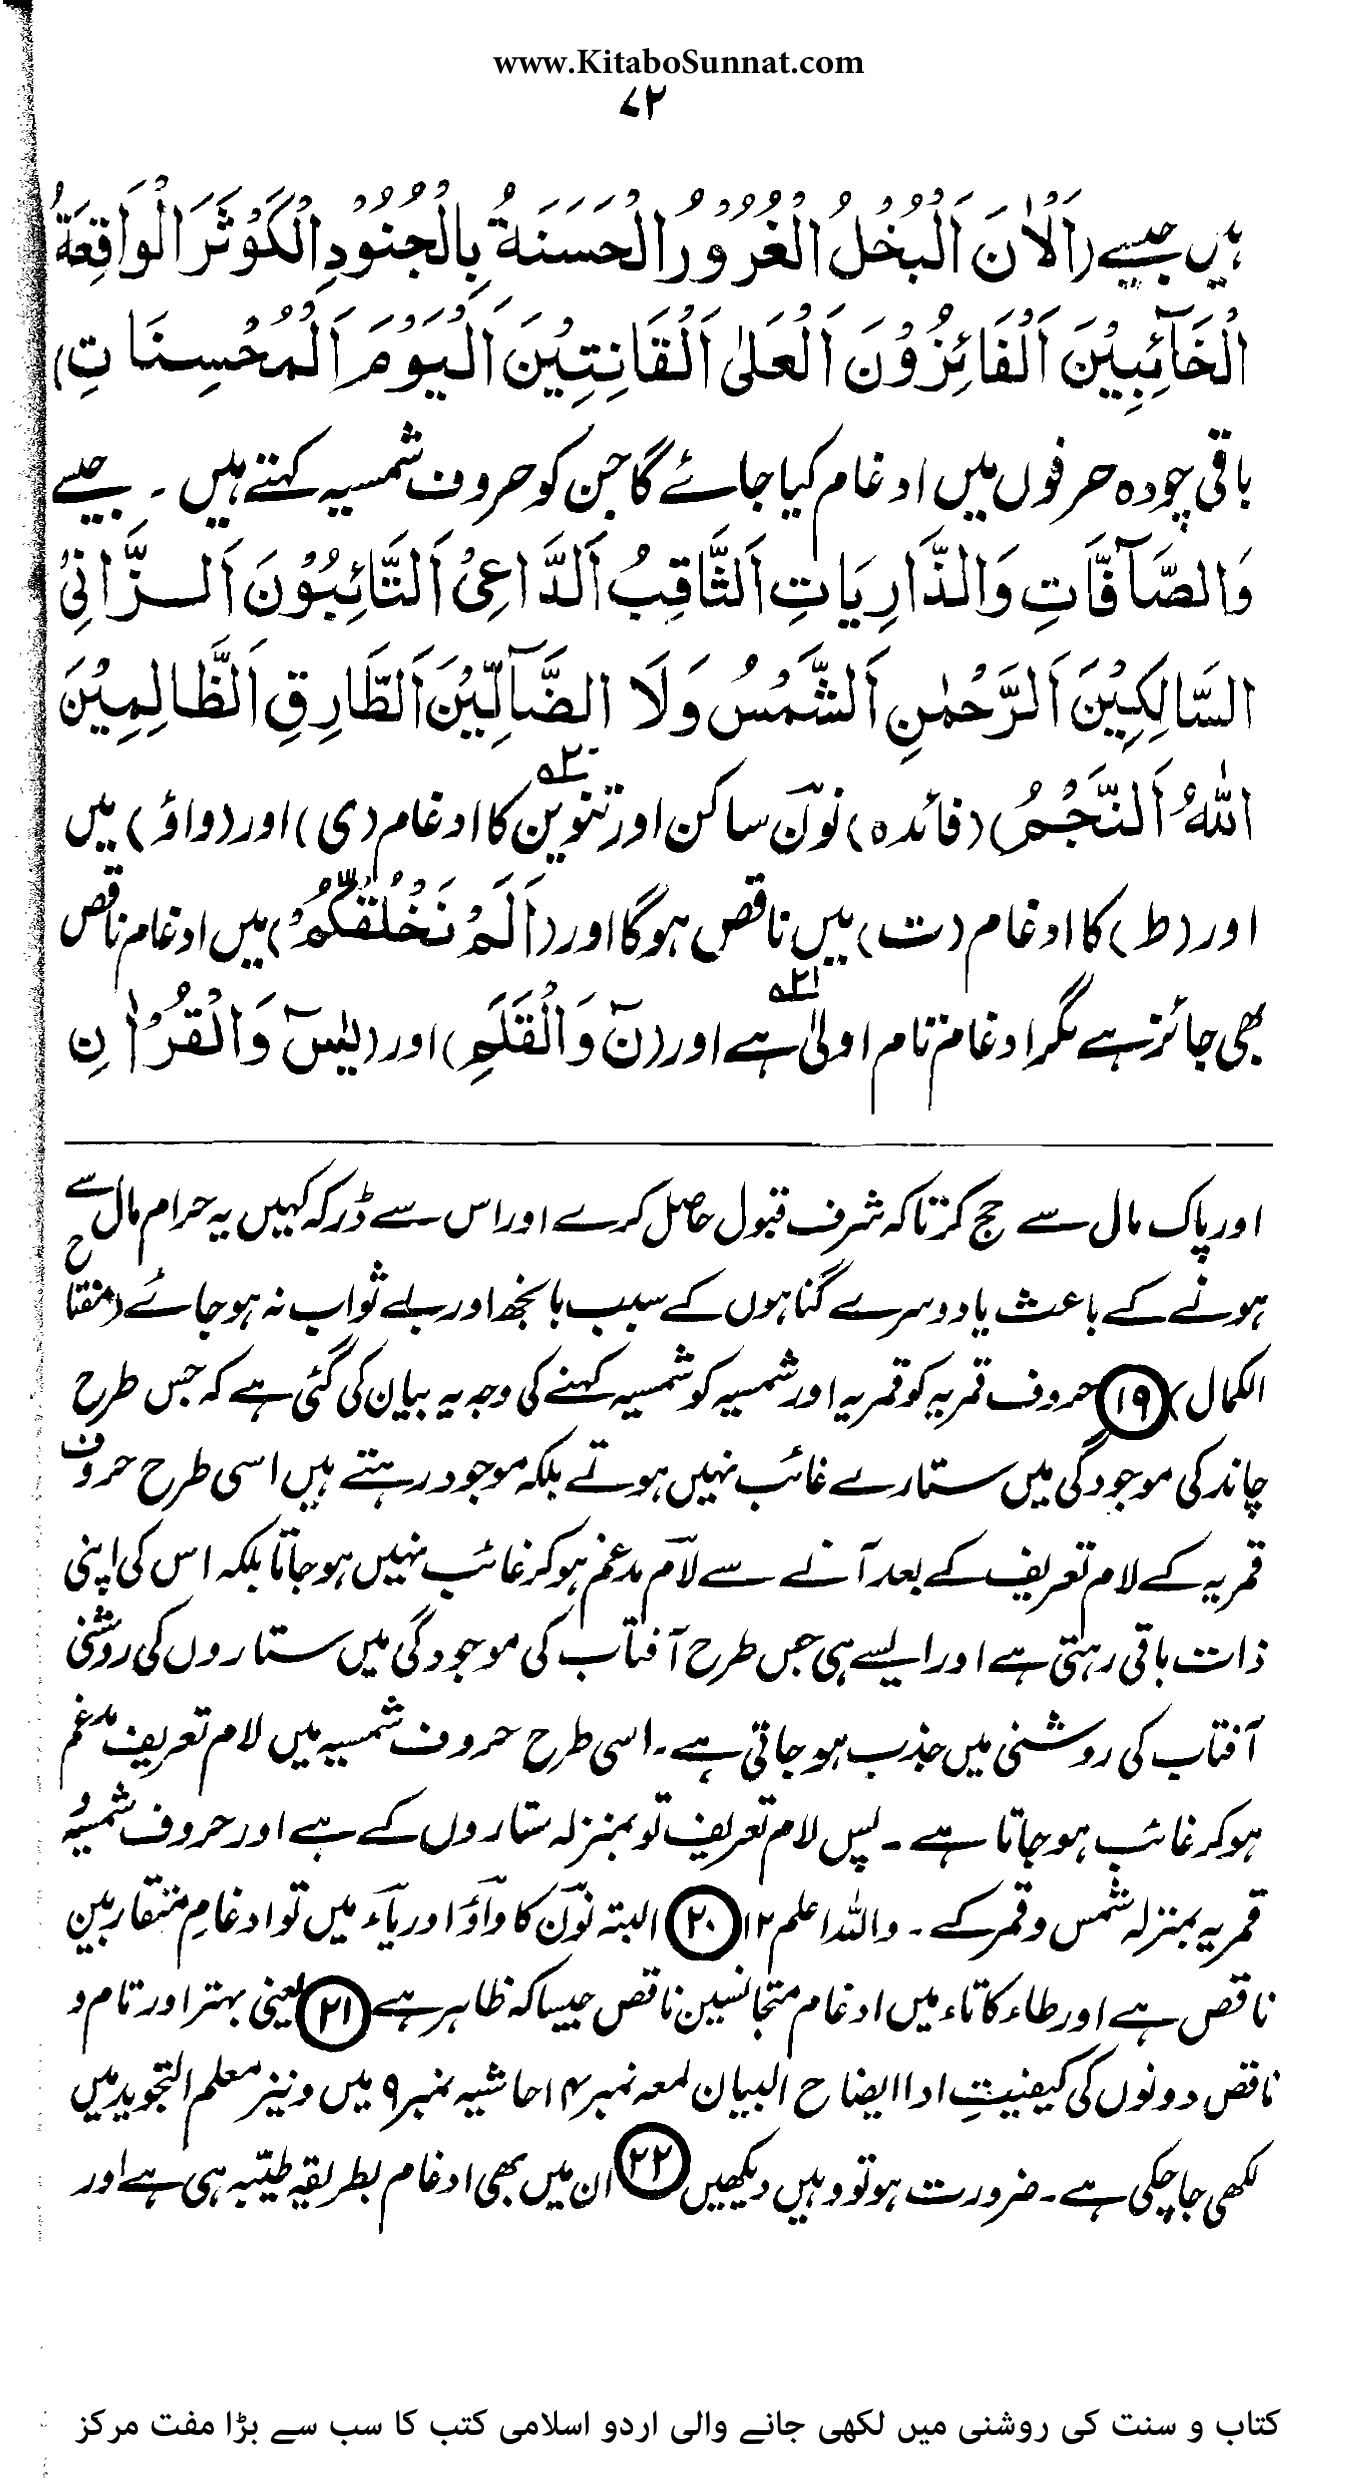 www.KitaboSunnat.com
۷۲
ہیں جیسے (اَلْاٰنَ اَلْبُخْلُ الْغُرُوْرُ الْحَسَنَةُ بِالْجُنُوْدِ الْكَوْثَرَ الْوَاقِعَةُ
الْخَآئِبِيْنَ اَلْفَائِزُوْنَ اَلْعَلٰى اَلْقَانِتِيْنَ اَلْيَوْمَ اَلْمُحْسِنَاتِ)
باقی چودہ حرفوں میں ادغام کیا جائے گا جن کو حروف شمسیہ کہتے ہیں ۔ جیسے
وَالصَّآفَّاتِ وَالذَّارِيَاتِ اَلثَّاقِبُ اَلدَّاعِىْ اَلتَّائِبُوْنَ اَلزَّانِىْ
السَّالِكِيْنَ اَلرَّحْمٰنِ اَلشَّمْسُ وَلَا الضَّآلِّيْنَ اَلطَّارِقِ اَلظَّالِمِيْنَ
اَللّٰهُ اَلنَّجْمُ) (فائدہ) نون ساکن اور تنوین کا ادغام (ی) اور (واؤ) میں ۲۰
اور (ط) کا ادغام (ت) میں ناقص ہوگا اور (اَلَمْ نَخْلُقْكُّمْ) میں ادغام ناقص
بھی جائز ہے مگر ادغام تام اولیٰ ہے ۲۱ اور (نٓ وَالْقَلَمِ) اور (يٰسٓ وَالْقُرْاٰنِ
اور پاک مال سے حج کر تاکہ شرف قبول حاصل کرے اور اس سے ڈر کہ کہیں یہ حرام مال سے حج
ہونے کے باعث یا دوسرے گناہوں کے سبب بانجھ اور بے ثواب نہ ہو جائے (مفتاح
الکمال) ⑲ حروف قمریہ کو قمریہ اور شمسیہ کو شمسیہ کہنے کی وجہ یہ بیان کی گئی ہے کہ جس طرح
چاند کی موجودگی میں ستارے غائب نہیں ہوتے بلکہ موجود رہتے ہیں اسی طرح حروف
قمریہ کے لام تعریف کے بعد آنے سے لام مدغم ہوکر غائب نہیں ہو جاتا بلکہ اس کی اپنی
ذات باقی رہتی ہے اور ایسے ہی جس طرح آفتاب کی موجودگی میں ستاروں کی روشنی
آفتاب کی روشنی میں جذب ہو جاتی ہے۔ اسی طرح حروف شمسیہ میں لام تعریف مدغم
ہوکر غائب ہو جاتا ہے ۔ پس لام تعریف تو بمنزلہ ستاروں کے ہے اور حروف شمسیہ و
قمریہ بمنزلہ شمس و قمر کے ۔ واللہ اعلم ۱۲ ⑳ البتہ نون کا واؤ اور یاء میں تو ادغام متقاربین
ناقص ہے اور طاء کا تاء میں ادغام متجانسین ناقص جیسا کہ ظاہر ہے ㉑ یعنی بہتر اور تام و
ناقص دونوں کی کیفیتِ ادا ایضاح البیان لمعہ نمبر ۱۴ حاشیہ نمبر ۹ میں و نیز معلم التجوید میں
لکھی جا چکی ہے۔ ضرورت ہو تو وہیں دیکھیں ㉒ ان میں بھی ادغام بطریقہ طیّبہ ہی ہے اور
کتاب و سنت کی روشنی میں لکھی جانے والی اردو اسلامی کتب کا سب سے بڑا مفت مرکز